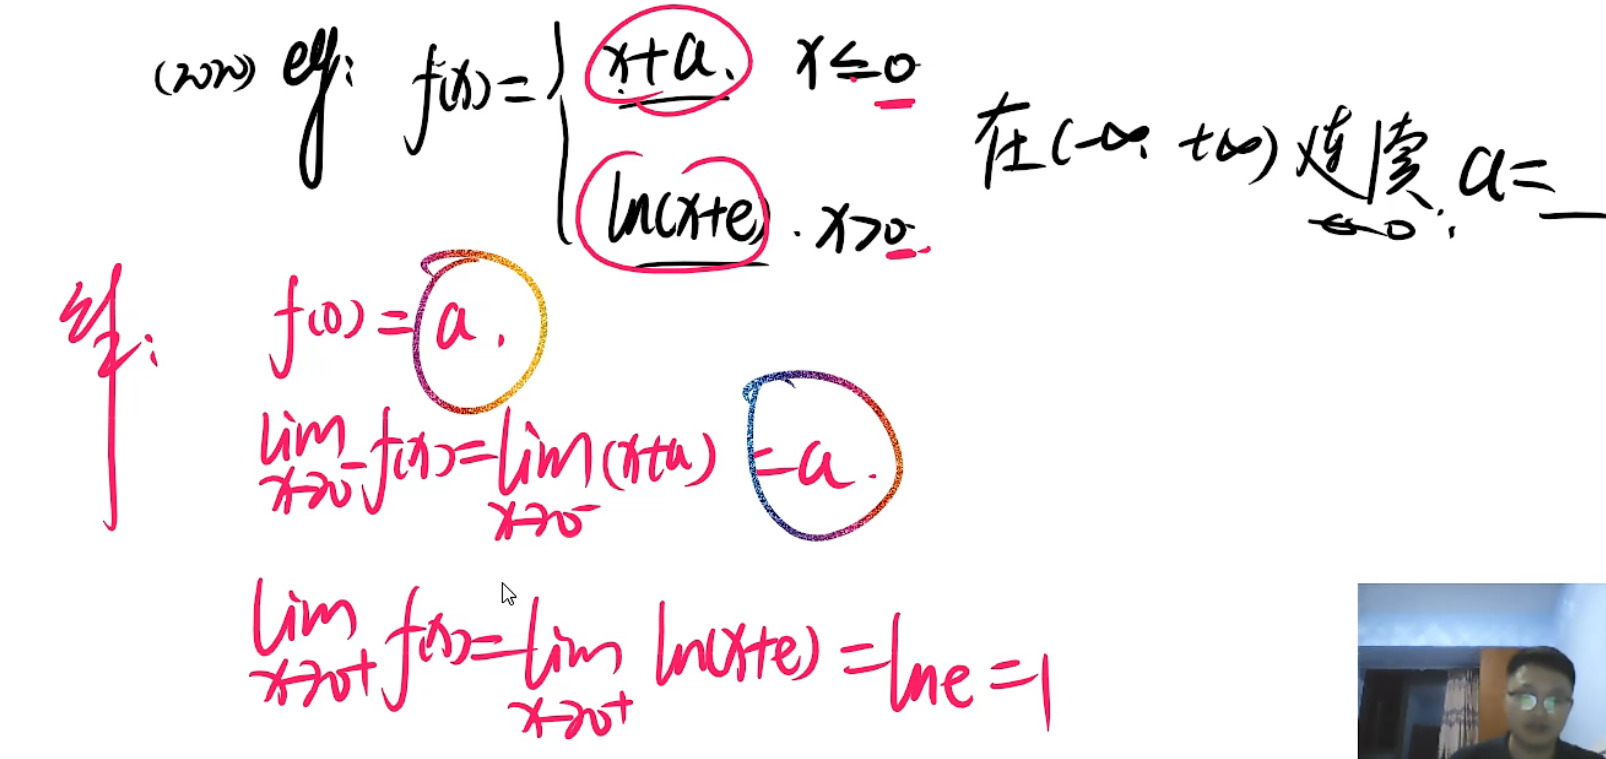 (2020) eg: f(x)={ x+a, x≤0
ln(x+e), x>0
在(-∞, +∞)连续, a=__
←0;
解:
f(0)=a.
lim x→0⁻ f(x)=lim x→0⁻ (x+a) =a.
lim x→0⁺ f(x)=lim x→0⁺ ln(x+e)=lne=1